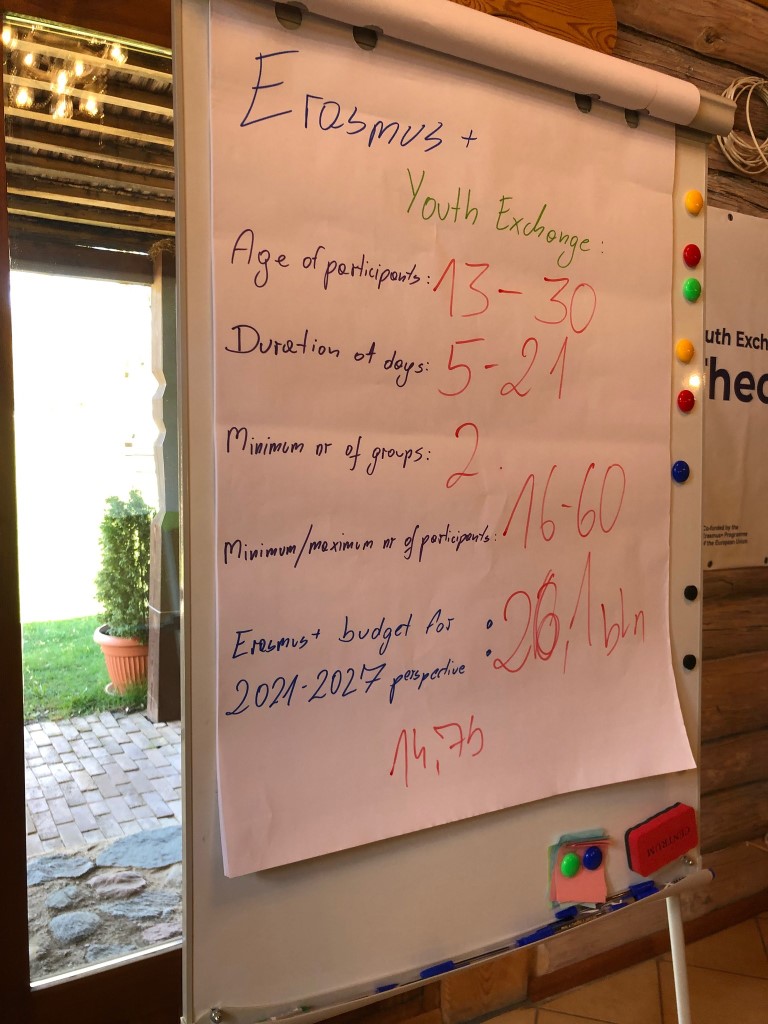 Erasmus +
Youth Exchange:
Age of participants: 13-30
Duration of days: 5-21
Minimum nr of groups: 2.
Minimum/maximum nr of participants: 16-60
Erasmus+ budget for
2021-2027 perspective : 26,1 bln
14,7b
uth Exch
hec
Co-funded by the
Erasmus+ Programme
of the European Union
CENTRUM